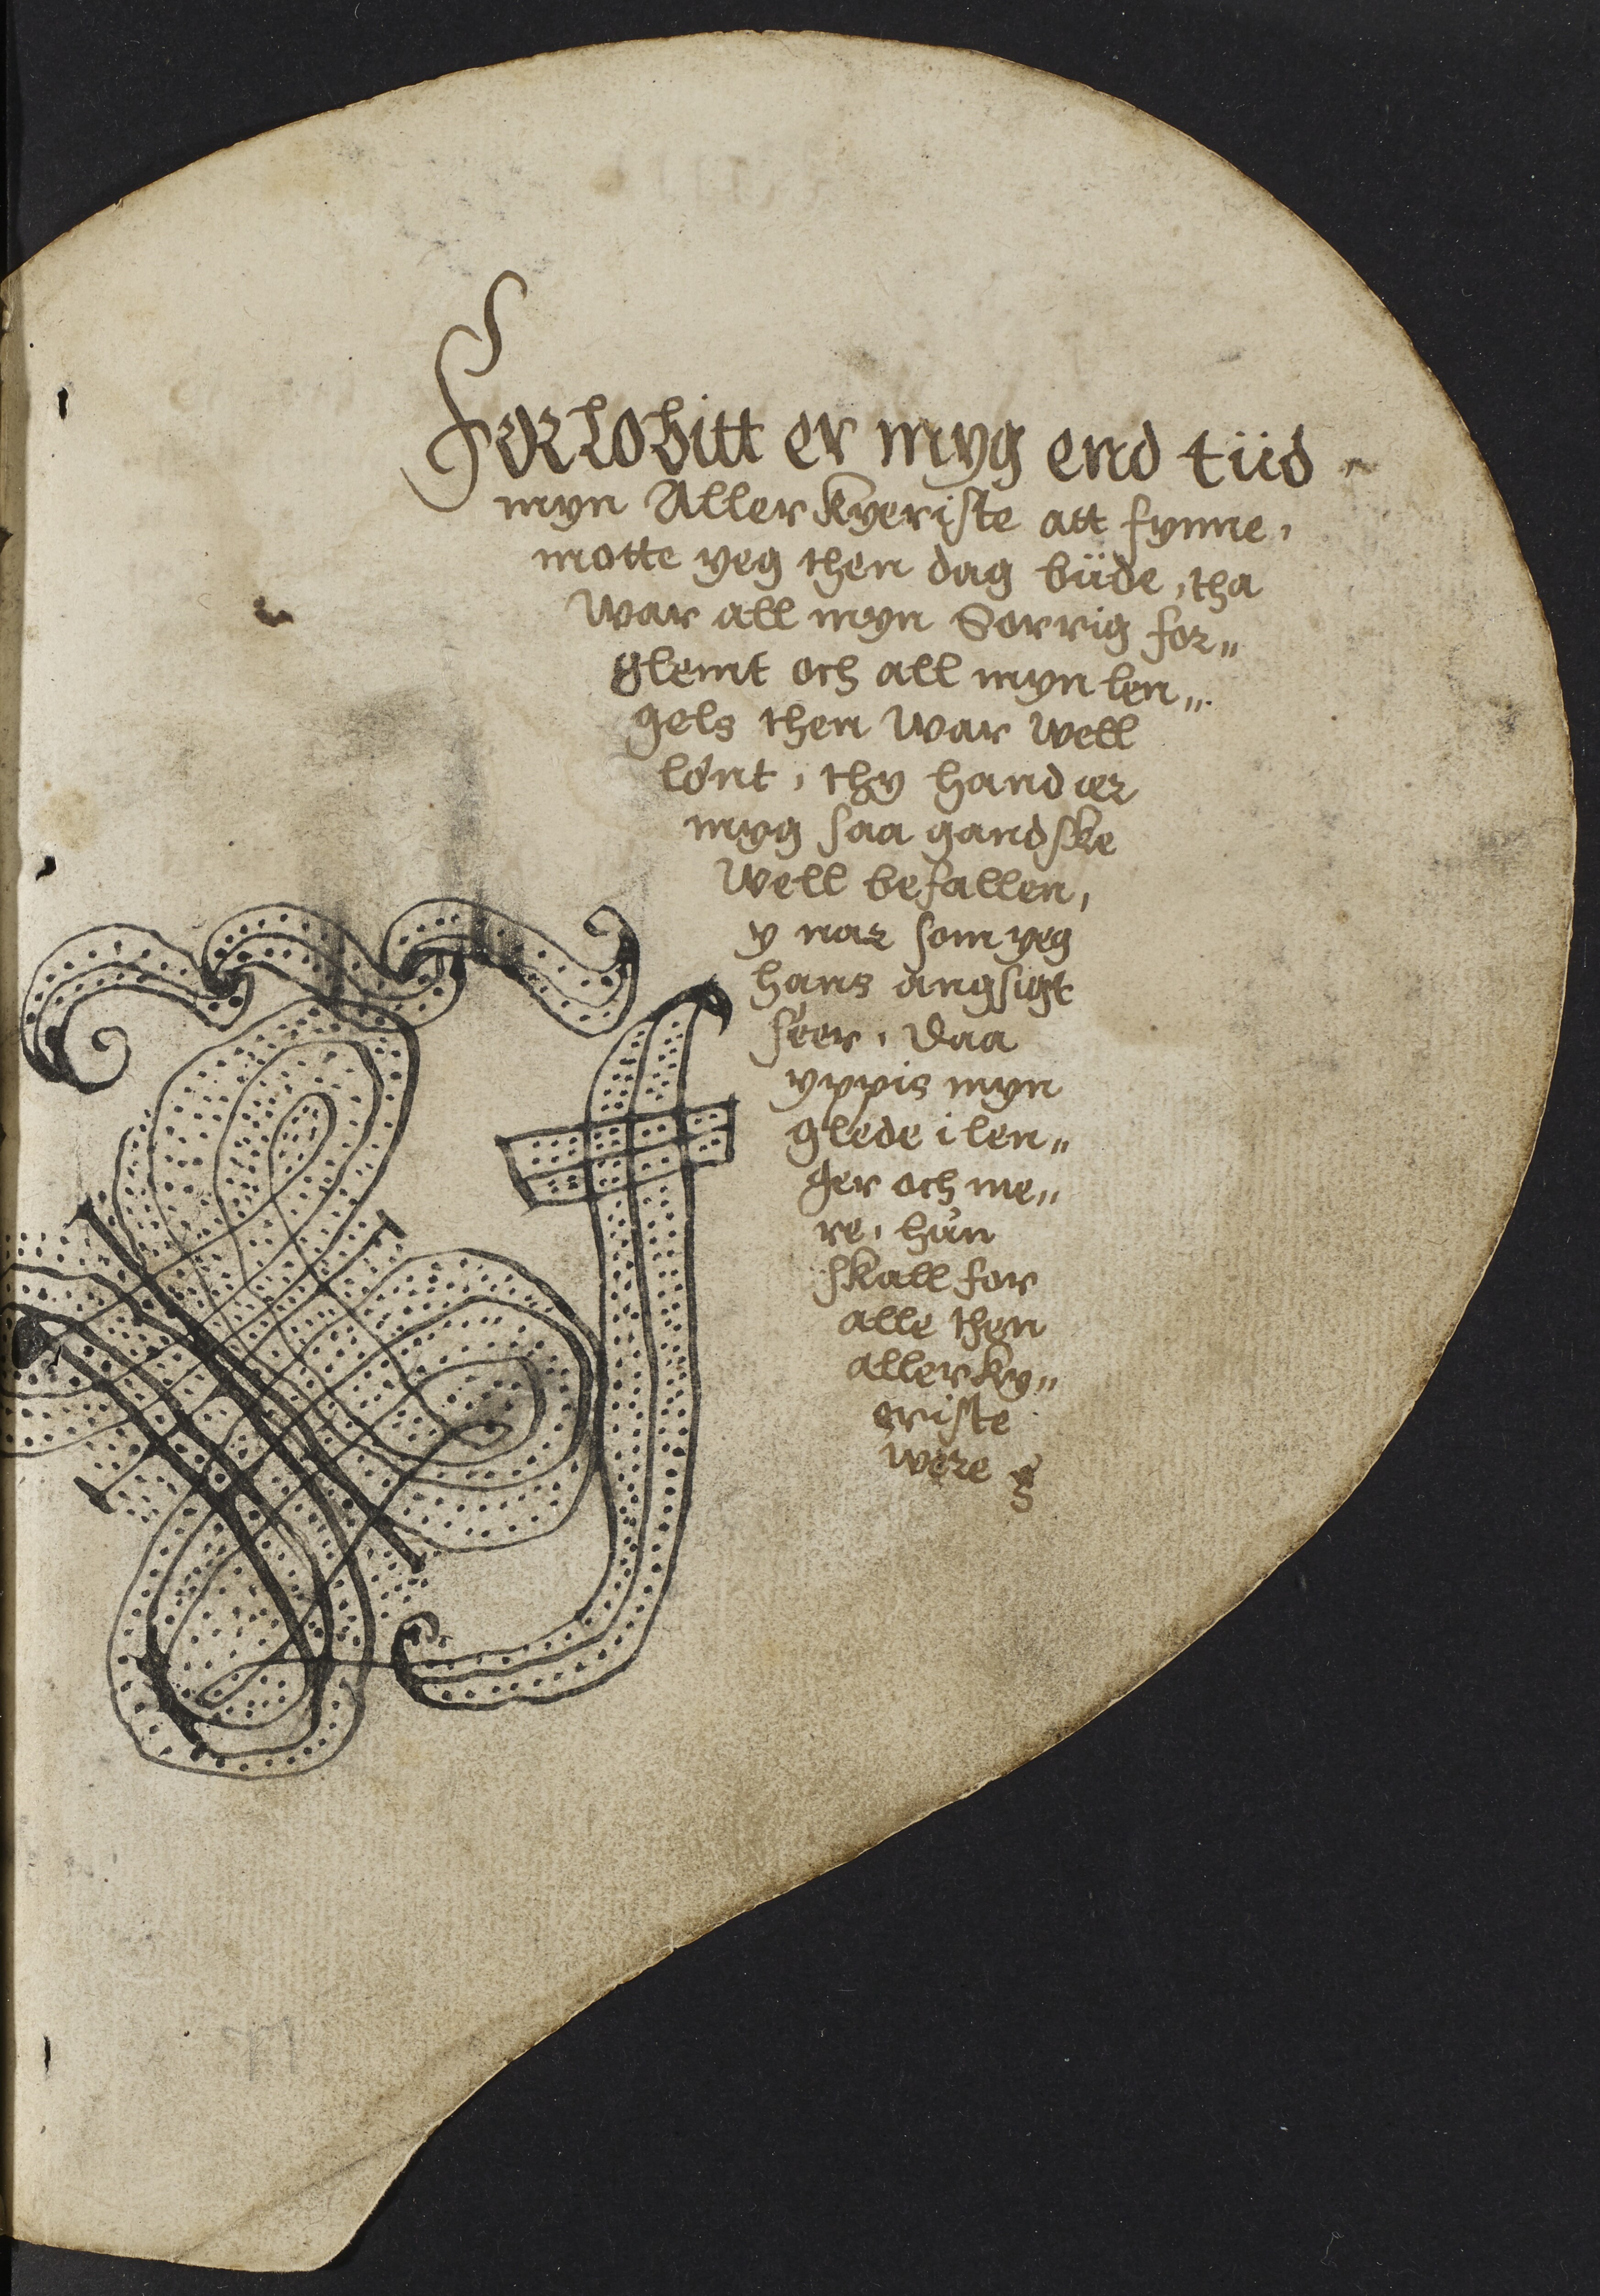 Forlobitt er myg end tiid
myn Aller kyeriste att fynne,
motte yeg then dag büde, tha
war all myn Sorrig for„
glemt och all myn len„
gels then war well
lønt, thy hand ær
myg saa gandske
well befallen,
y nar som yeg
hans angsigt
seer, Daa
yppis myn
glede i len„
ger och me„
re, hun
skall for
alle then
aller ky„
eriste
were